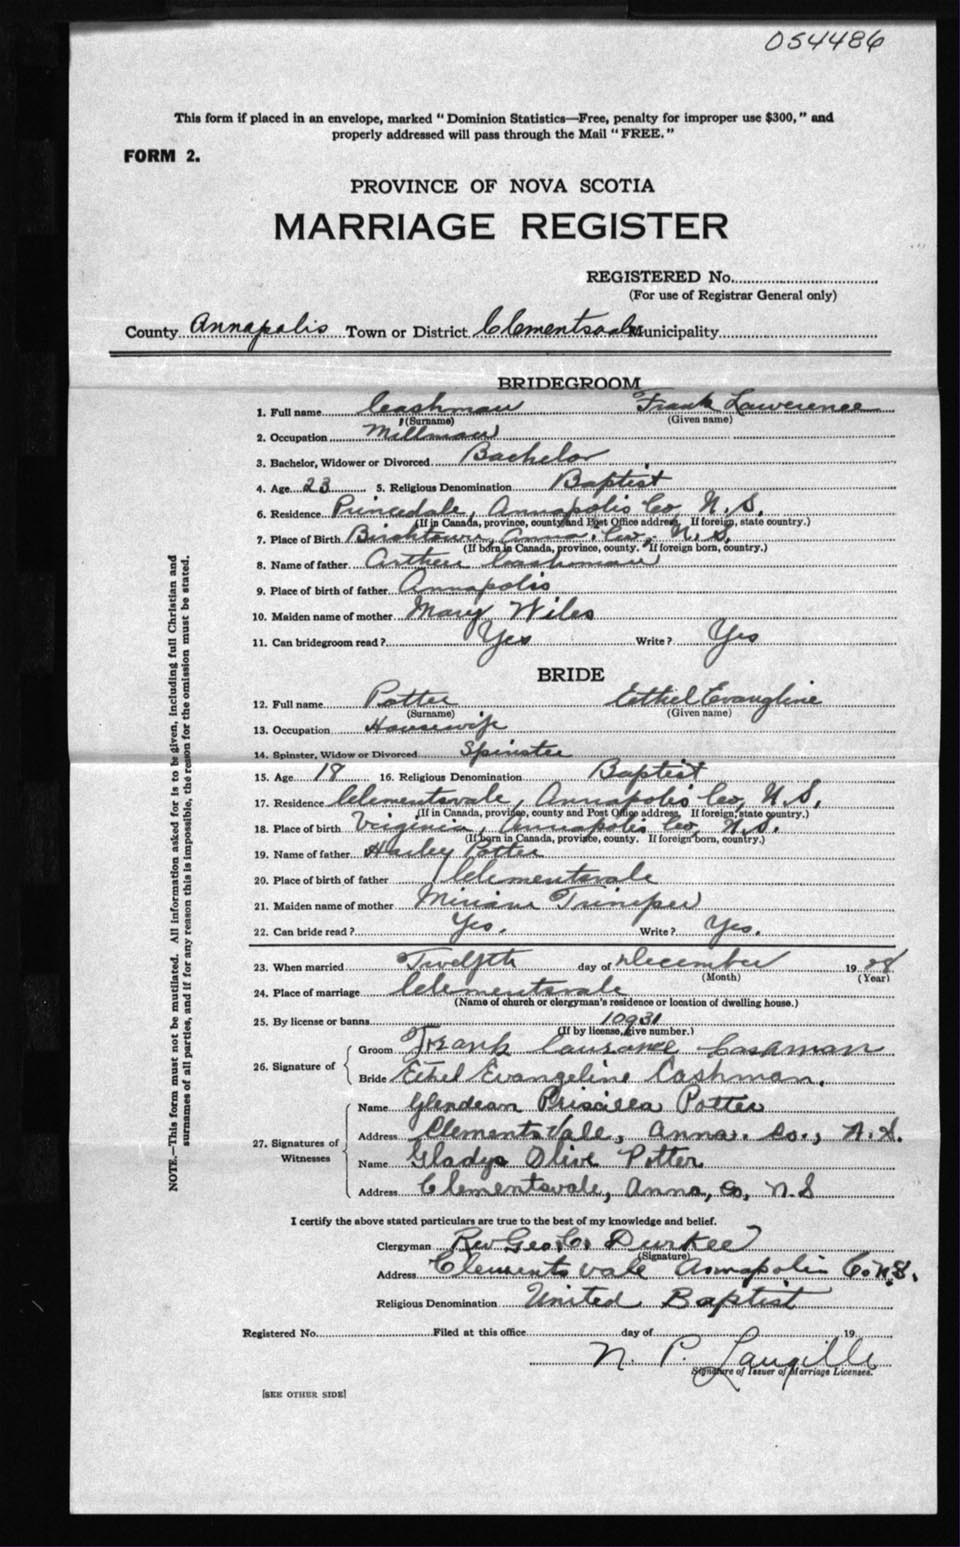 054486
This form if placed in an envelope, marked "Dominion Statistics—Free, penalty for improper use $300," and
properly addressed will pass through the Mail "FREE."
FORM 2.
PROVINCE OF NOVA SCOTIA
MARRIAGE REGISTER
REGISTERED No.
(For use of Registrar General only)
County Annapolis Town or District Clementsvale Municipality
BRIDEGROOM
1. Full name Cashman Frank Lawerence
(Surname) (Given name)
2. Occupation Millman
3. Bachelor, Widower or Divorced Bachelor
4. Age 23 5. Religious Denomination Baptist
6. Residence Princedale, Annapolis Co, N.S.
(If in Canada, province, county and Post Office address. If foreign, state country.)
7. Place of Birth Anna. Co, N.S.
(If born in Canada, province, county. If foreign born, country.)
8. Name of father Arthur Cashman
9. Place of birth of father Annapolis
10. Maiden name of mother Mary Wiles
11. Can bridegroom read? Yes Write? Yes
BRIDE
12. Full name Potter Eethel Evangline
(Surname) (Given name)
13. Occupation Housewife
14. Spinster, Widow or Divorced Spinster
15. Age 18 16. Religious Denomination Baptist
17. Residence Clementsvale, Annapolis Co, N.S.
(If in Canada, province, county and Post Office address. If foreign, state country.)
18. Place of birth Virginia, Annapolis Co, N.S.
(If born in Canada, province, county. If foreign born, country.)
19. Name of father Harley Potter
20. Place of birth of father Clementsvale
21. Maiden name of mother Miriam
22. Can bride read? Yes. Write? Yes.
23. When married Twelfth day of December 19 28
(Month) (Year)
24. Place of marriage Clementsvale
(Name of church or clergyman's residence or location of dwelling house.)
25. By license or banns 10931
(If by license, give number.)
26. Signature of Groom Frank Laurance Cashman
Bride Ethel Evangeline Cashman.
27. Signatures of Witnesses Name Glendean Priscilla Potter
Address ClementsVale, Anna. Co., N.S.
Name Gladys Olive Potter
Address Clementsvale, Anna, Co, N.S
I certify the above stated particulars are true to the best of my knowledge and belief.
Clergyman Rev Geo. C. Durkee
(Signature)
Address Clementsvale Annapolis Co N.S.
Religious Denomination United Baptist
Registered No. Filed at this office day of 19
N. P. Langille
Signature of Issuer of Marriage Licenses.
[SEE OTHER SIDE]
NOTE.—This form must not be mutilated. All information asked for is to be given, including full Christian and
surnames of all parties, and if for any reason this is impossible, the reason for the omission must be stated.